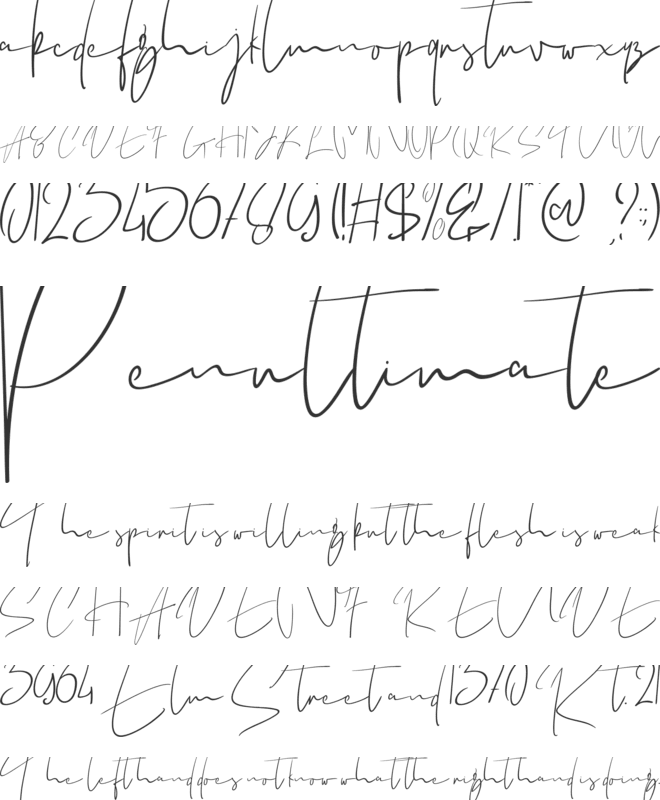 abcdefghijklmnopqrstuvwxyz
ABCDEF GHIJKLMNOPQRSTUVW
0123456789(!#$%&/|@?:;,)
Penultimate
The spirit is willing but the flesh is weak
SCHADENF REUDE
3964 Elm Street and 1370 Rt. 21
The left hand does not know what the right hand is doing.